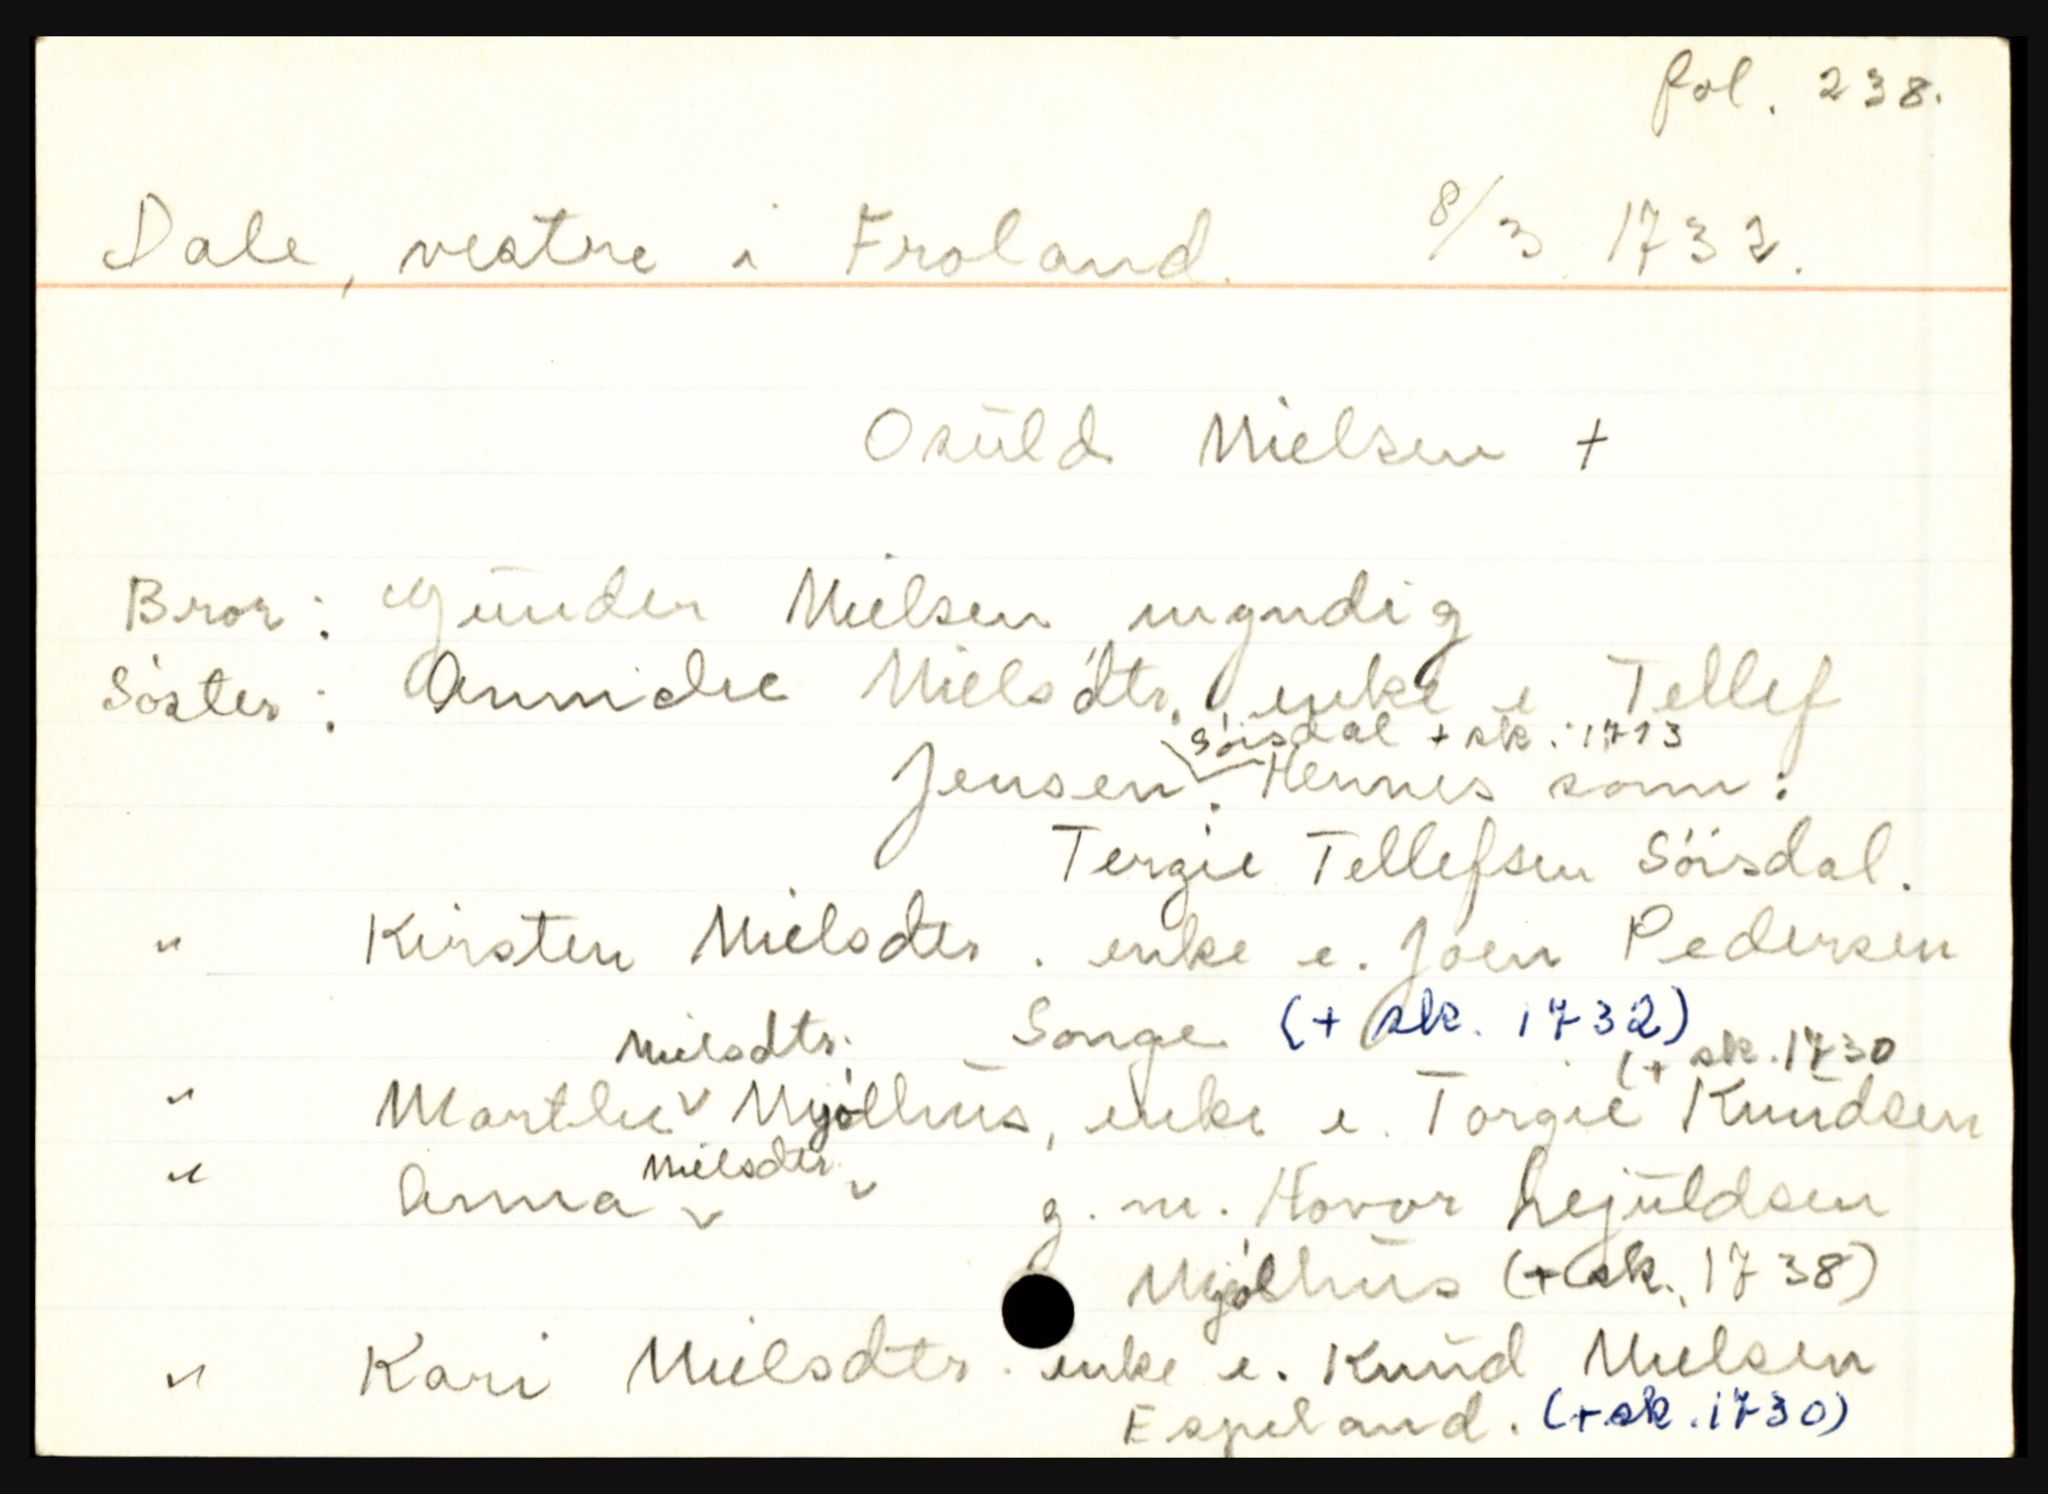 fol. 238.
Dale, vestre i Froland. 8/3 1732.
Osüld Nielsen +
Bror: Günder Nielsen myndig
Söster: Annichе Nielsdtr. enke e Tellef
Söisdal + sk. 1713
Jensen. Hennes sønn:
Tergie Tellefsen Söisdal.
" Kirsten Nielsdtr. enke e. Joen Pedersen
Songe (+ sk. 1732)
Nielsdtr. (+ sk. 1730
" Marthe Mjölhüs, enke e. Torgie Knüdsen
Nielsdtr.
" Anna g. m. Hovor Lejüldsen
Mjölhüs (+ sk. 1738)
" Kari Nielsdtr. enke e. Knüd Nielsen
Espeland. (+ sk. 1730)